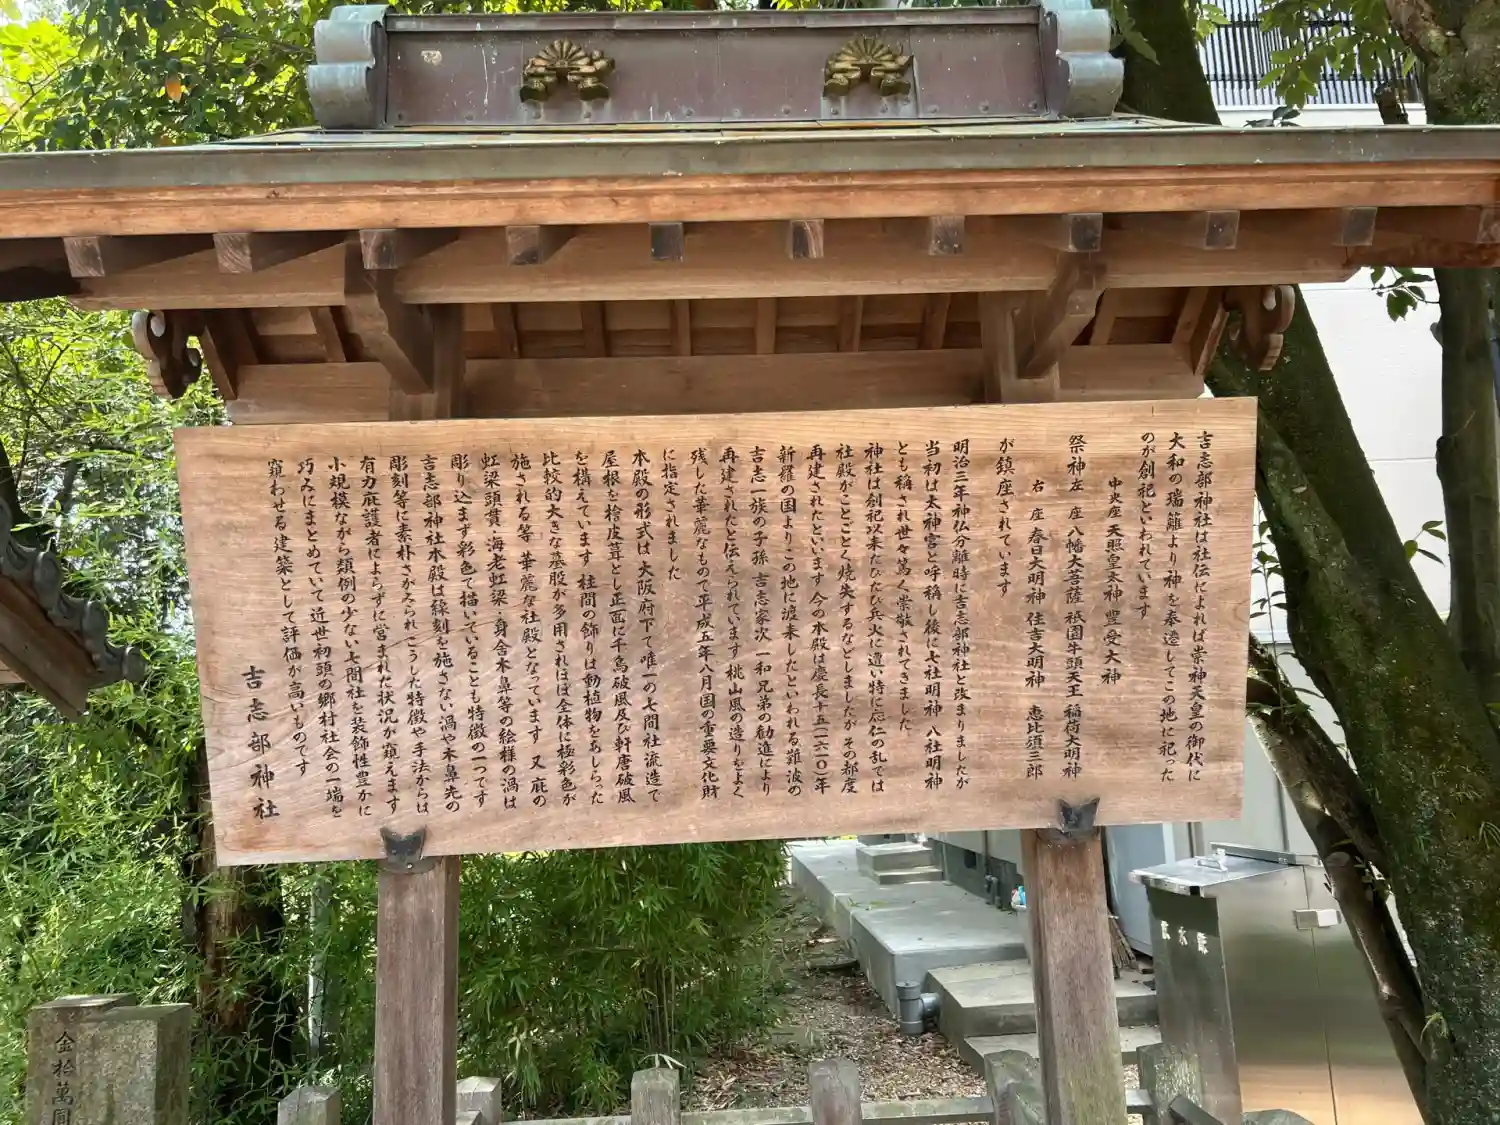 吉志部神社は社伝によれば崇神天皇の御代に
大和の瑞籬より神を奉遷してこの地に祀った
のが創祀といわれています
中央座 天照皇大神 豊受大神
祭神左 座 八幡大菩薩 祇園牛頭天王 稲荷大明神
右 座 春日大明神 住吉大明神 恵比須三郎
が鎮座されています
明治三年神仏分離時に吉志部神社と改まりましたが
当初は太神宮と呼称し後に七社明神 八社明神
とも称され世々篤く崇敬されてきました
神社は創祀以来たびたび兵火に遭い特に応仁の乱では
社殿がことごとく焼失するなどしましたが その都度
再建されたといいます 今の本殿は慶長十五(一六一〇)年
新羅の国よりこの地に渡来したといわれる難波の
吉志一族の子孫 吉志家次 一和兄弟の勧進により
再建されたと伝えられています 桃山風の造りをよく
残した華麗なもので平成五年八月国の重要文化財
に指定されました
本殿の形式は大阪府下で唯一の七間社流造で
屋根を檜皮葺とし正面に千鳥破風及び軒唐破風
を構えています 柱間の飾りは動植物をあしらった
比較的大きな蟇股が多用されほぼ全体に極彩色が
施される等 華麗な社殿となっています 又 庇の
虹梁頭貫 海老虹梁 身舎木鼻等の絵様の渦は
彫り込まず彩色で描いていることも特徴の一つです
吉志部神社本殿は線刻を施さない渦や木鼻先の
彫刻等に素朴さがみられこうした特徴や手法からは
有力庇護者によらずに営まれた状況が窺えます
小規模ながら類例の少ない七間社を装飾性豊かに
巧みにまとめていて近世初頭の郷村社会の一端を
窺わせる建築として評価が高いものです
吉志部神社
金拾萬圓